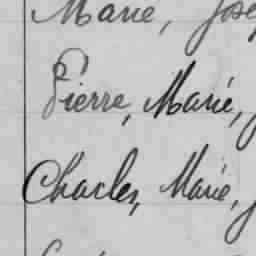 Marie, Jose
Pierre, Marie,
Charles, Marie,